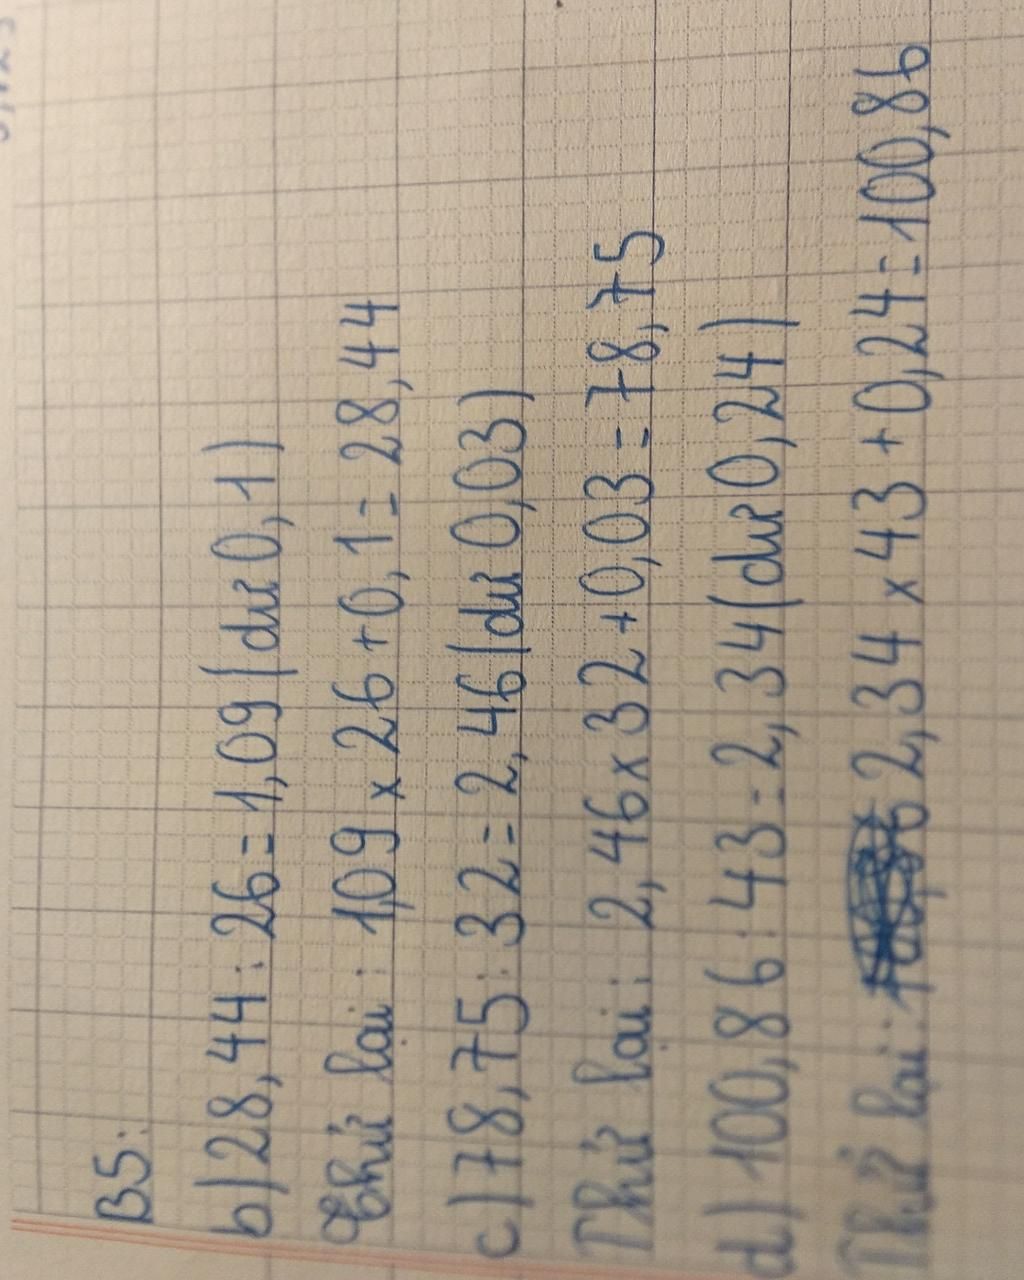 B5:
b) 28,44 : 26 = 1,09 (dư 0,1)
Thử lại : 1,09 x 26 + 0,1 = 28,44
c) 78,75 : 32 = 2,46 (dư 0,03)
Thử lại : 2,46 x 32 + 0,03 = 78,75
d) 100,86 : 43 = 2,34 (dư 0,24)
Thử lại : 2,34 x 43 + 0,24 = 100,86